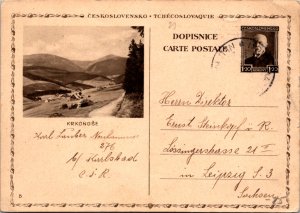 ČESKOSLOVENSKO - TCHÉCOSLOVAQUIE
DOPISNICE
CARTE POSTALE
1.20 1.20
KRKONOŠE
Karl
276
b/ Karlsbad
Č.S.R.
Herrn Direktor
Ernst i. R.
Lössingerstrasse 24 II
in Leipzig S. 3
Sachsen